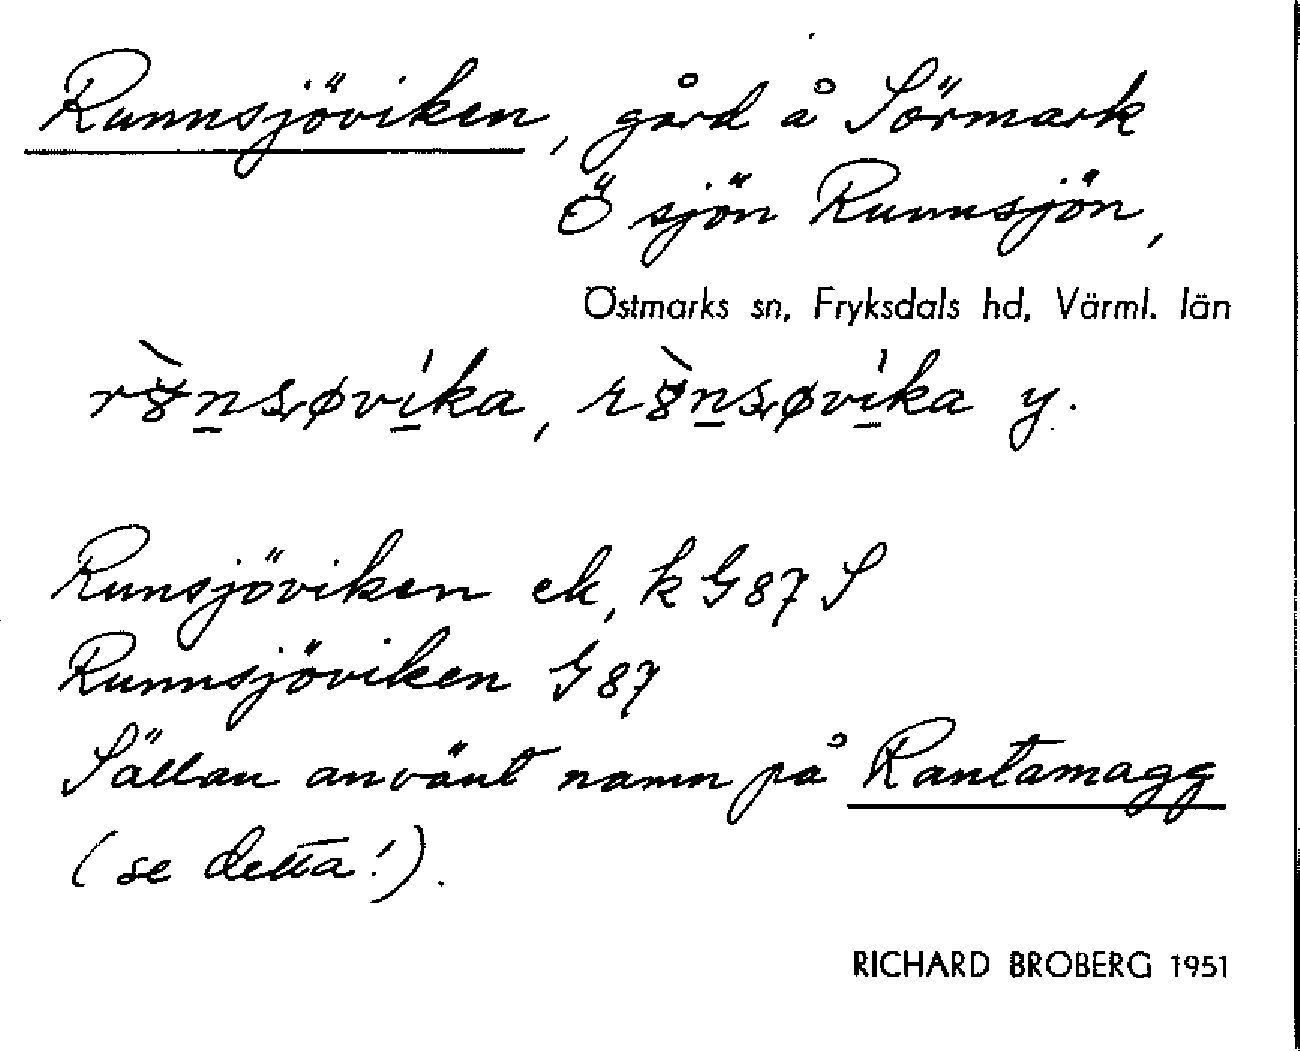 Runnsjöviken, gård å Sörmark
Ö sjön Runnsjön,
Östmarks sn, Fryksdals hd, Värml. län
y.
Runsjöviken ek, k G 87 S
Runnsjöviken G 87
Sällan använt namn på Rantamagg
(se detta!).
RICHARD BROBERG 1951